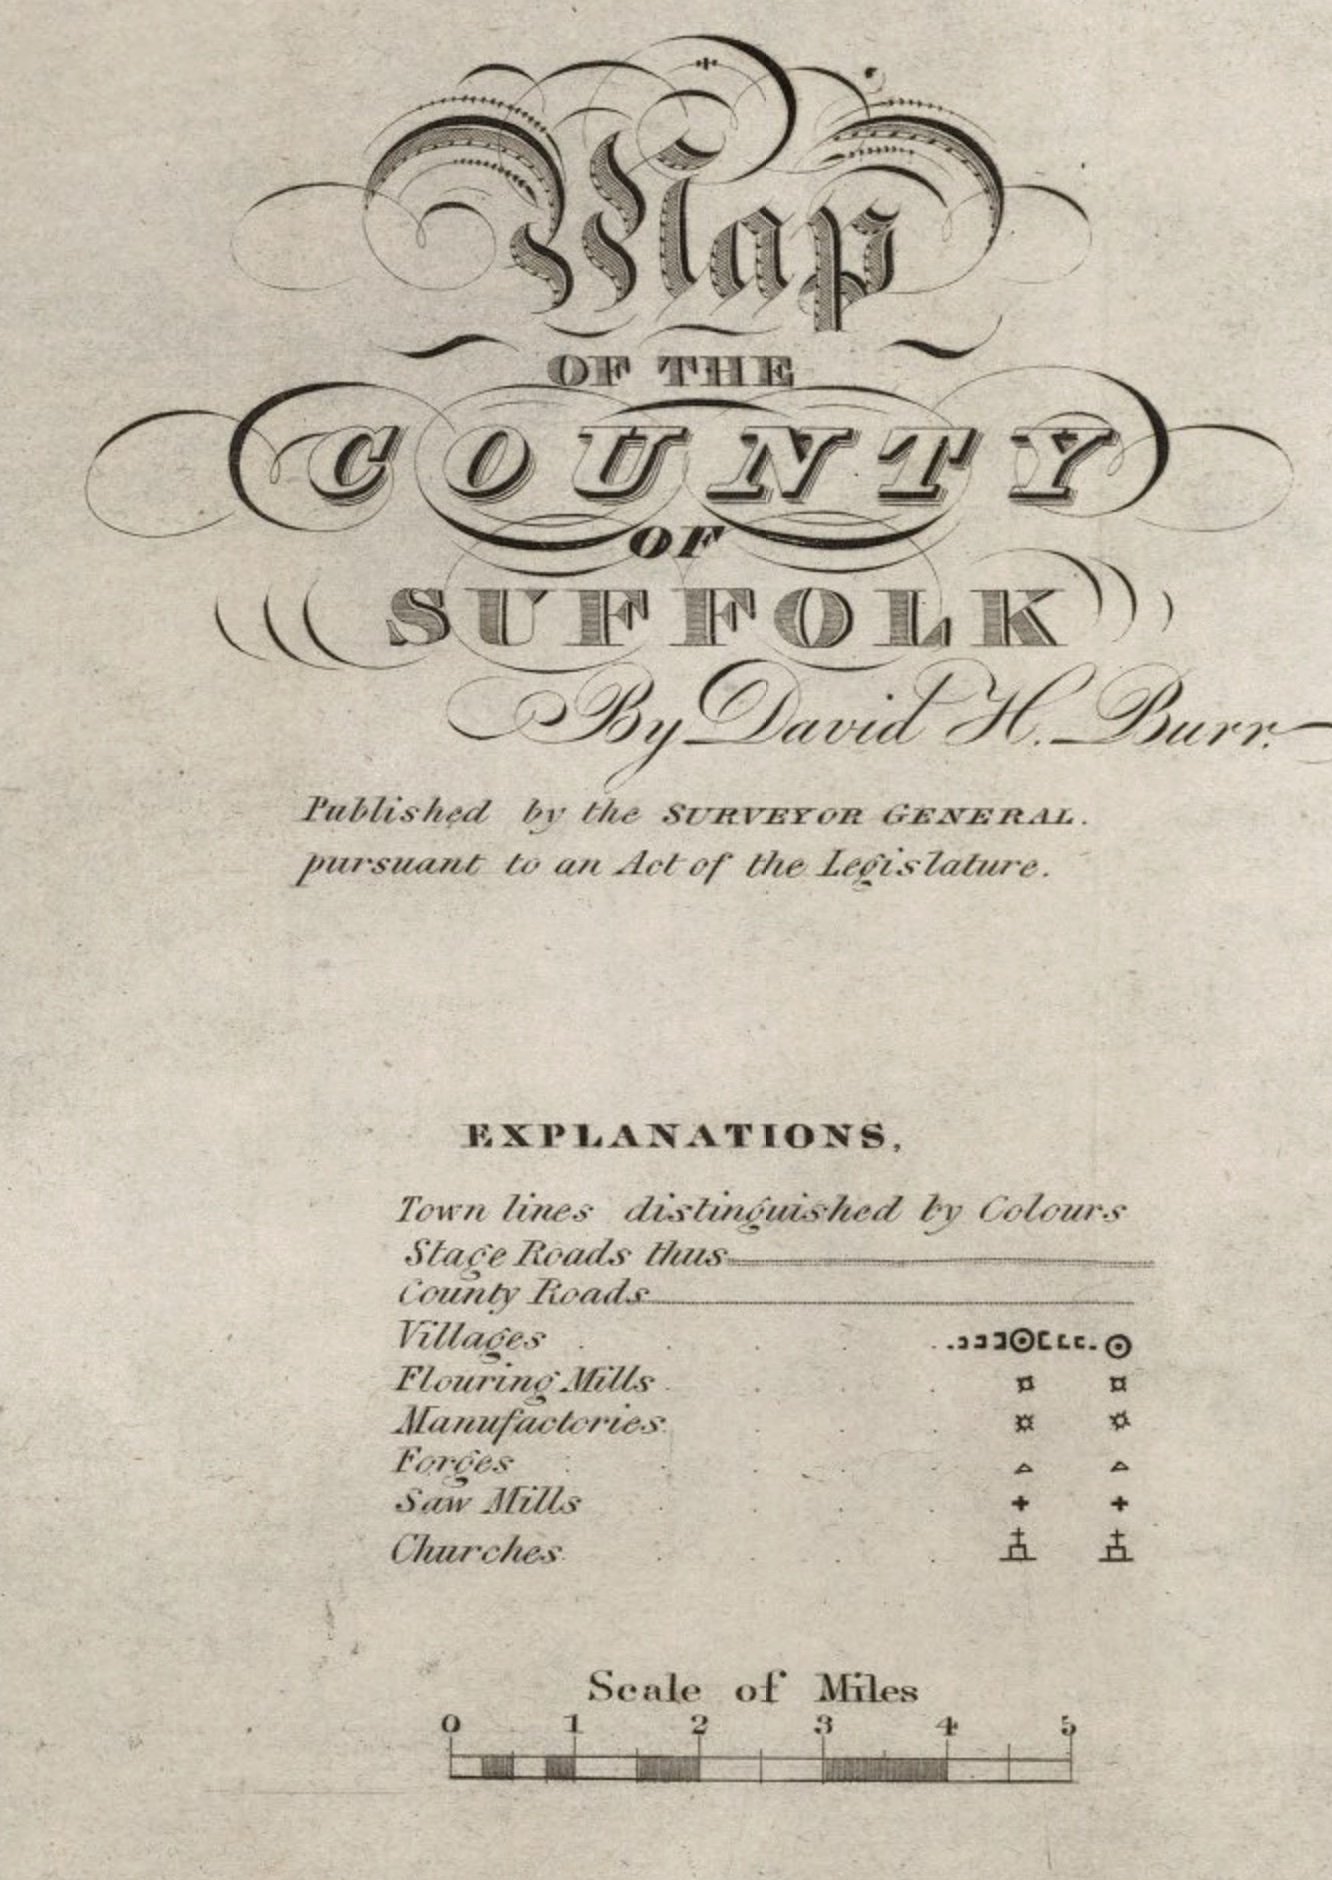 Map
OF THE
COUNTY
OF
SUFFOLK
By David H. Burr.
Published by the SURVEYOR GENERAL.
pursuant to an Act of the Legislature.
EXPLANATIONS,
Town lines distinguished by Colours
Stage Roads thus
County Roads
Villages
Flouring Mills
Manufactories
Forges
Saw Mills
Churches
Scale of Miles
0 1 2 3 4 5